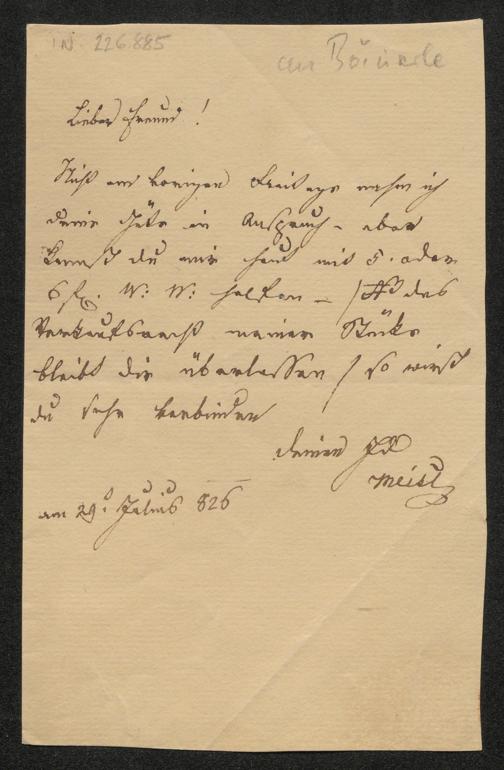 IN 226.885
an Bäuerle
Lieber Freund!
Nicht am vorigen Freitage nahm ich
deine Güte in Anspruch – aber
kannst du mir heut mit 5. oder
6 fl. W: W: helfen – / das
Verkaufsrecht meiner Stücke
bleibt dir überlassen / so wirst
du sehr verbinden
deinen
Meisl
am 29t Julius 826